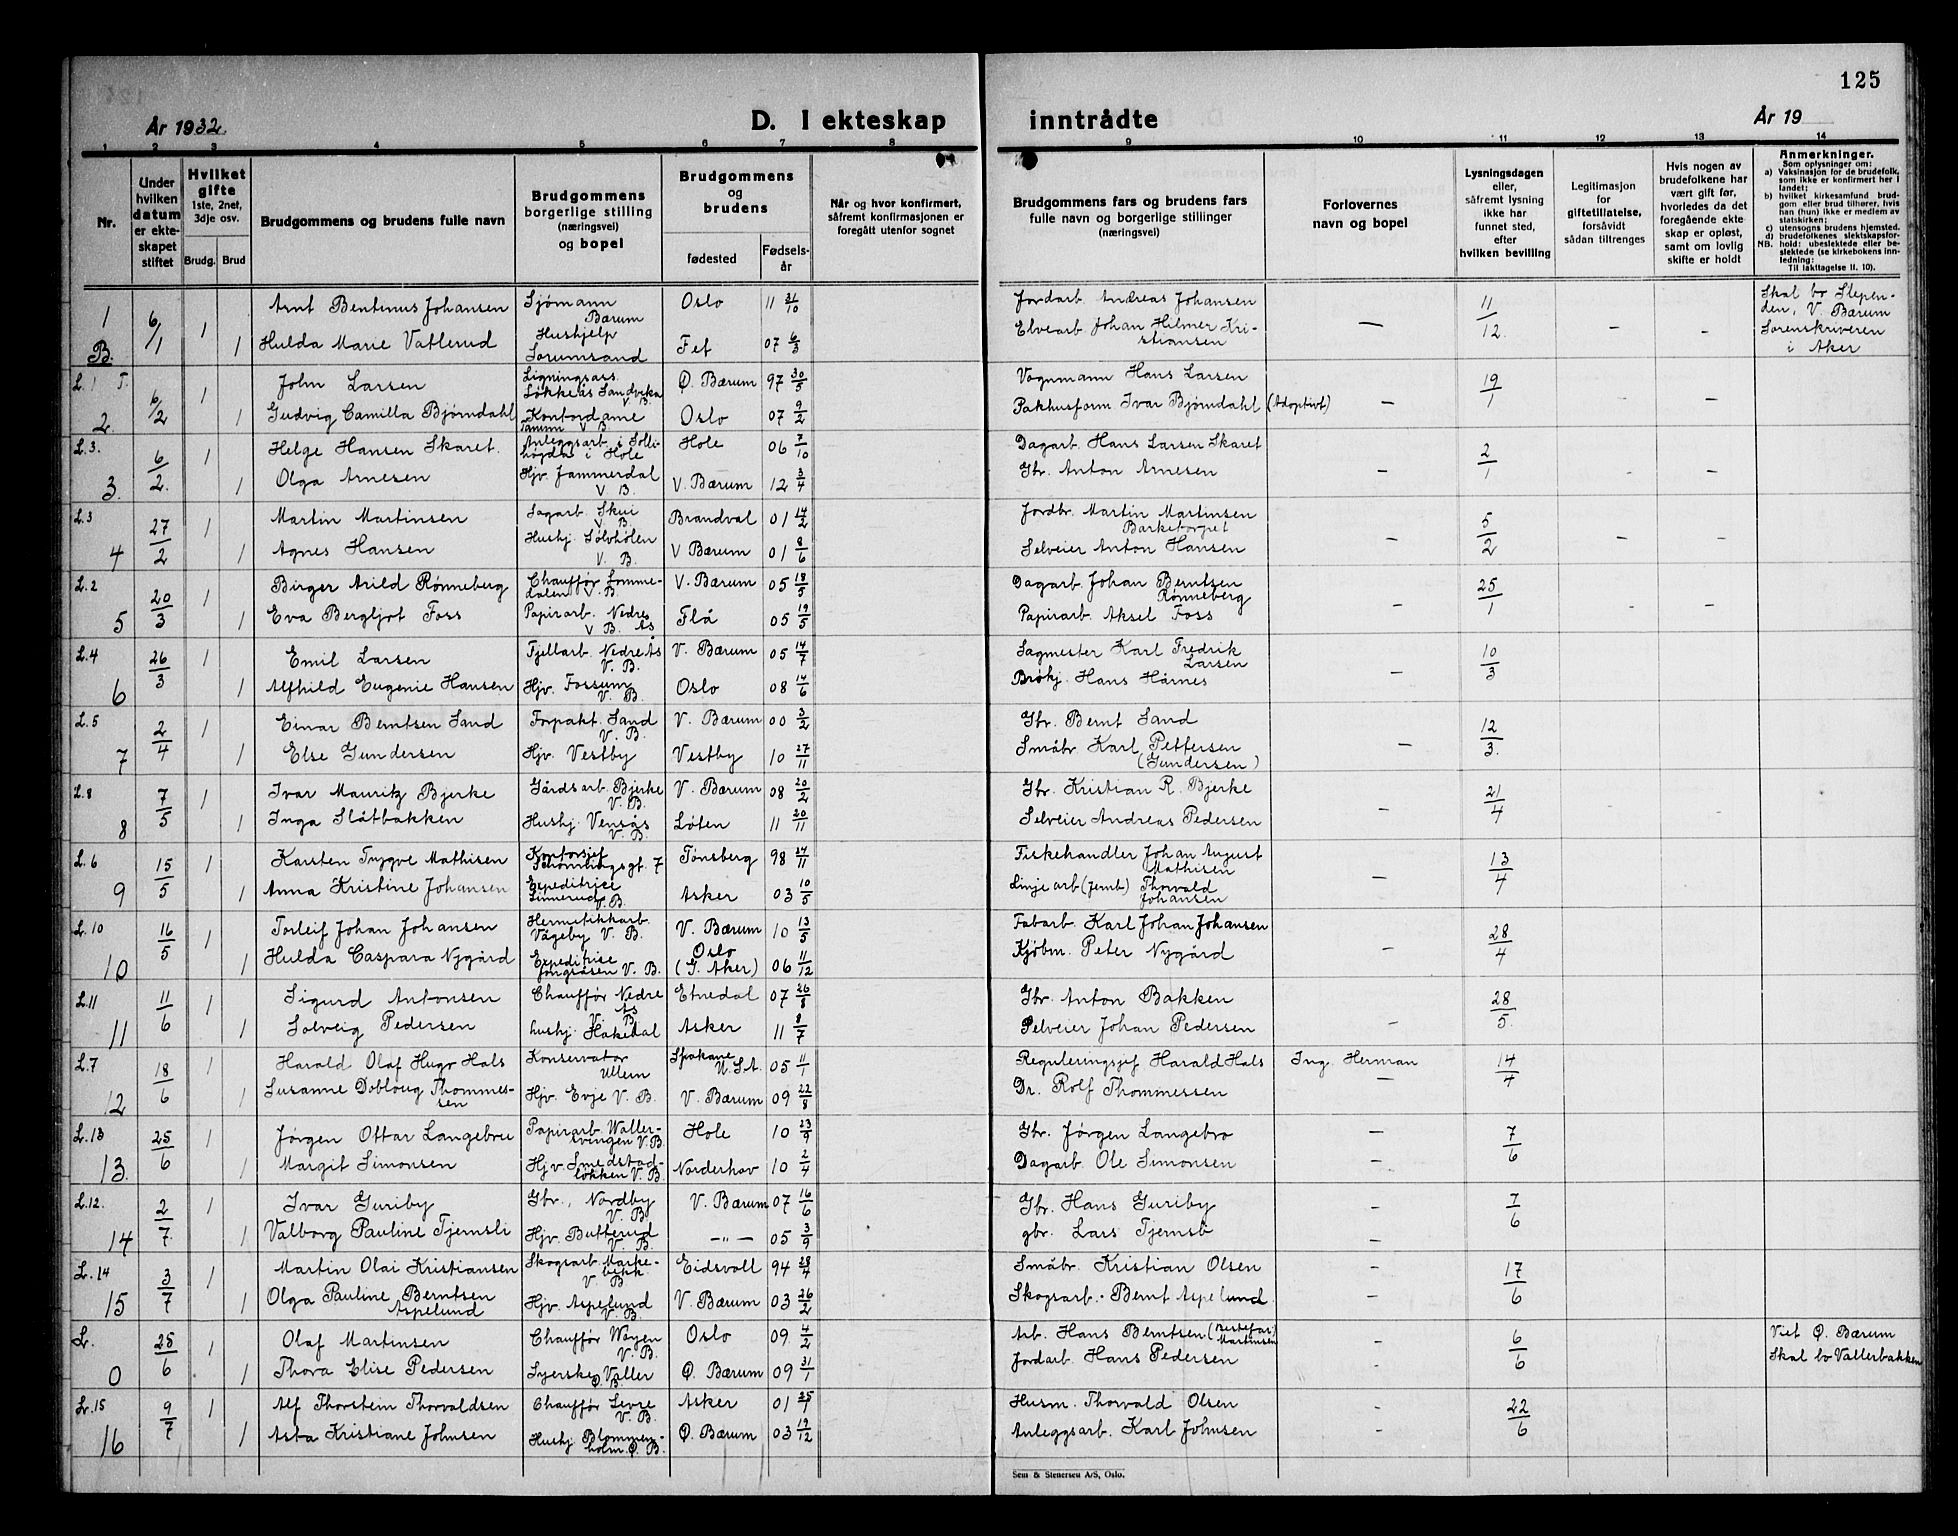 125
År 1932.
D. I ekteskap
inntrådte
År 19
1 2 3 4 5 6 7 8 9 10 11 12 13 14
Nr.
Under hvilken datum er ekteskapet stiftet
Hvilket gifte 1ste, 2net, 3dje osv.
Brudg. Brud
Brudgommens og brudens fulle navn
Brudgommens borgerlige stilling (næringsvei) og bopel
Brudgommens og brudens
fødested
Fødselsår
Når og hvor konfirmert, såfremt konfirmasjonen er foregått utenfor sognet
Brudgommens fars og brudens fars fulle navn og borgerlige stillinger (næringsvei)
Forlovernes navn og bopel
Lysningsdagen eller, såfremt lysning ikke har funnet sted, efter hvilken bevilling
Legitimasjon for giftetillatelse, forsåvidt sådan tiltrenges
Hvis nogen av brudefolkene har vært gift før, hvorledes da det foregående ekteskap er opløst, samt om lovlig skifte er holdt
Anmerkninger.
Som oplysninger om:
a) Vaksinasjon for de brudefolk, som ikke er konfirmert her i landet;
b) hvilket kirkesamfund brudgom eller brud tilhører, hvis han (hun) ikke er medlem av statskirken;
c) utensogns brudens hjemsted.
d) brudefolkenes slektskapsforhold: ubeslektede eller beslektede (se kirkebokens innledning;
NB. Til iakttagelse li. 10).
1 6/1 1 Arnt Bentinus Johansen Sjømann Bærum Oslo 11 31/10 Jordarb. Andreas Johansen — 11/12 – – Skal bo Stependen, V. Bærum
B. 1 Hulda Marie Vatlerud Hushjelp Sorumsand Fet 07 6/3 Elvearb Johan Hilmer Kristiansen Sorenskriveren i Aker
L. 1 T. 6/2 1 John Larsen Ligningsass. Løkkeås Sandvika V. B. Ø. Bærum 97 30/5 Vognmann Hans Larsen 19/1
2. 1 Gudvig Camilla Bjørndahl Kontordame Tanum V B Oslo 07 9/2 Pakhusform. Ivar Bjørndahl (Adoptivt) –
L. 3. 6/2. 1 Helge Hansen Skaret. Anleggsarb. i Sollihøgda i Hole Hole 06 7/10 Dagarb. Hans Larsen Skaret 2/1
3. 1 Olga Arnesen Hjv. Jammerdal V B. V. Bærum 12 3/4 Gbr. Anton Arnesen –
L. 3 27/2 1 Martin Martinsen Sagarb. Skui V. B. Brandval 01 14/2 Jordbr. Martin Martinsen Barketorpet 5/2
4 1 Agnes Hansen Hushj. Sølvhølen V. B. V Bærum 01 8/6 Selveier Anton Hansen –
L. 2 20/3 1 Birger Arild Rønneberg Chauffør Lommedalen V. B. V. Bærum 05 18/5 Dagarb. Johan Berntsen Rønneberg 25/1
5 1 Eva Bergljot Foss Papirarb. Nedre Ås V B. Flå 05 19/5 Papirarb. Aksel Foss –
L. 4 26/3 1 Emil Larsen Fjellarb. Nedre Ås V. B. V. Bærum 05 14/7 Sagmester Karl Fredrik Larsen 10/3
6 1 Alfhild Eugenie Hansen Hjv. Fossum V. B. Oslo 08 14/6 Brøkj. Hans Hårnes –
L. 5 2/4 1 Einar Berntsen Sand Forpakt. Sand V. B. V. Bærum 00 3/2 Gbr. Bernt Sand 12/3.
7 1 Else Gundersen Hjv. Vestby Vestby 10 27/11 Småbr. Karl Pettersen (Gundersen) –
L. 8 7/5 1 Ivar Mauritz Bjerke Gårdsarb. Bjerke V. B. V. Bærum 08 20/2 Gbr. Kristian R. Bjerke 21/4
8 1 Inga Slåtbakken Hushj. Vensås V. B. Løten 11 20/11 Selveier Andreas Pedersen –
L. 6 15/5 1 Karsten Trygve Mathisen Kontorsjef 7 Tønsberg 98 24/11 Fiskehandler Johan August Mathisen 13/4
9 1 Anna Kristine Johansen Expeditrice V. B. Asker 03 10/5 Linjearb (Jernb) Thorvald Johansen –
L. 10 16/5 1 Torleif Johan Johansen Hermetikkarb. Vågeby V. B. V. Bærum 10 13/5 Fabarb. Karl Johan Johansen 28/4
10 1 Hulda Caspara Nygård Expeditrise Jongsåsen V. B. Oslo (G. Aker) 06 11/12 Kjøbm. Peter Nygård –
L. 11 11/6 1 Sigurd Antonsen Chauffør Nedre Ås V. B. Etnedal 07 26/8 Gbr. Anton Bakken 28/5.
11 1 Solveig Pedersen hushj. Hakedal Asker 11 8/7 Selveier Johan Pedersen –
L. 7 18/6 1 Harald Olaf Hugo Hals Konservator Ullern Spokane U. S. A. 05 11/1 Reguleringsjef Harald Hals Ing. Herman 14/4
12 1 Susanne Dobloug Thommessen Hjv. Evje V. B. V. Bærum 09 22/8 Dr. Rolf Thommessen –
L. 13 25/6 1 Jørgen Ottar Langebru Papirarb. Wallersvingen V. B. Hole 10 23/9 Gbr. Jørgen Langebro – 7/6
13. 1 Margit Simonsen Hjv. Smedstadløkken V. B. Norderhov 10 2/4 Dagarb. Ole Simonsen –
L. 12. 2/7. 1 Ivar Guriby Gbr., Nordby V. B. V. Bærum 07 16/6 Gbr. Hans Guriby – 7/6
14 1 Valborg Pauline Tjernsli Hjv. Butterud V. B. —"— 05 3/9 gbr. Lars Tjernsli –
L. 14 3/7 1 Martin Olai Kristiansen Skogsarb. V. B. Eidsvoll 94 28/4 Småbr. Kristian Olsen – 17/6
15 1 Olga Pauline Berntsen Aspelund Hjv. Aspelund V. B. V. Bærum 03 26/2 Skogsarb. Bernt Aspelund –
L. 25/6 1 Olaf Martinsen Chauffør Wøyen V. B. Oslo 09 4/2 Arb. Hans Berntsen (Bestefar) Martinsen – 6/6 Viet Ø. Bærum
0 1 Thora Elise Pedersen Syerske Valler Ø. B. Ø. Bærum 09 31/1 Jordarb. Hans Pedersen Skal bo Vallerbakken
L. 15 9/7 1 Alf Thorstein Thorvaldsen Chauffør Levre V. B. Asker 01 Husm. Thorvald Olsen – 22/6
16 1 Asta Kristiane Johnsen Hushj. Blommenholm Ø. B. Ø. Bærum 03 19/12 Anleggsarb. Karl Johnsen –
Sem & Stenersen A/S, Oslo.